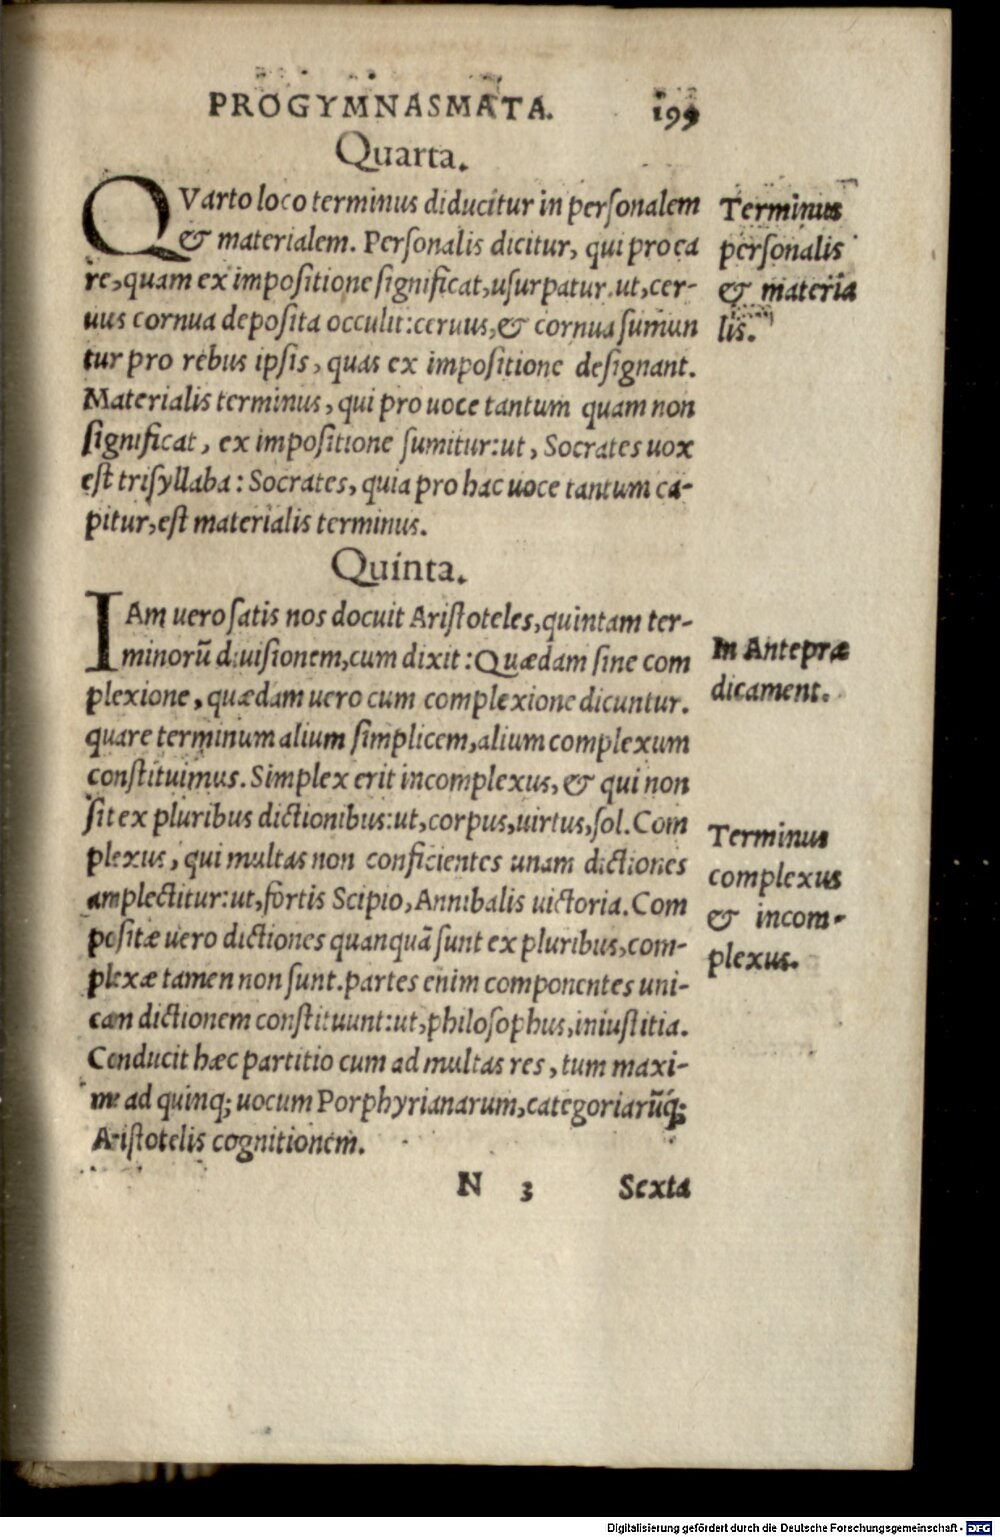 PROGYMNASMATA. 199
Quarta.
QVarto loco terminus diducitur in personalem
& materialem. Personalis dicitur, qui pro ea
re, quam ex impositione significat, usurpatur. ut, cer-
uus cornua deposita occulit: ceruus, & cornua sumun
tur pro rebus ipsis, quas ex impositione designant.
Materialis terminus, qui pro uoce tantum quam non
significat, ex impositione sumitur: ut, Socrates uox
est trisyllaba: Socrates, quia pro hac uoce tantum ca-
pitur, est materialis terminus.
Terminus
personalis
& materia
lis.
Quinta.
IAm uero satis nos docuit Aristoteles, quintam ter-
minorū diuisionem, cum dixit: Quædam sine com
plexione, quædam uero cum complexione dicuntur.
quare terminum alium simplicem, alium complexum
constituimus. Simplex erit incomplexus, & qui non
sit ex pluribus dictionibus: ut, corpus, uirtus, sol. Com
plexus, qui multas non conficientes unam dictiones
amplectitur: ut, fortis Scipio, Annibalis uictoria. Com
positæ uero dictiones quanquā sunt ex pluribus, com-
plexæ tamen non sunt. partes enim componentes uni-
cam dictionem constituunt: ut, philosophus, iniustitia.
Conducit hæc partitio cum ad multas res, tum maxi-
me ad quinq; uocum Porphyrianarum, categoriarūq́;
Aristotelis cognitionem.
In Antepræ
dicament.
Terminus
complexus
& incom-
plexus.
N 3 Sexta
Digitalisierung gefördert durch die Deutsche Forschungsgemeinschaft - DFG